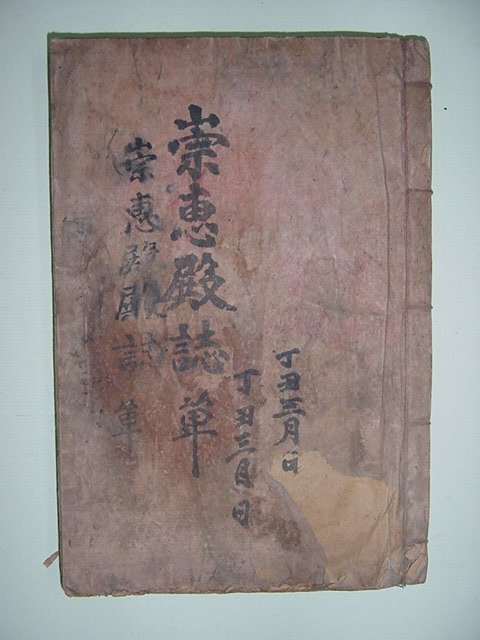 丁丑三月日
丁丑三月日
崇惠殿誌单
崇惠殿誌单